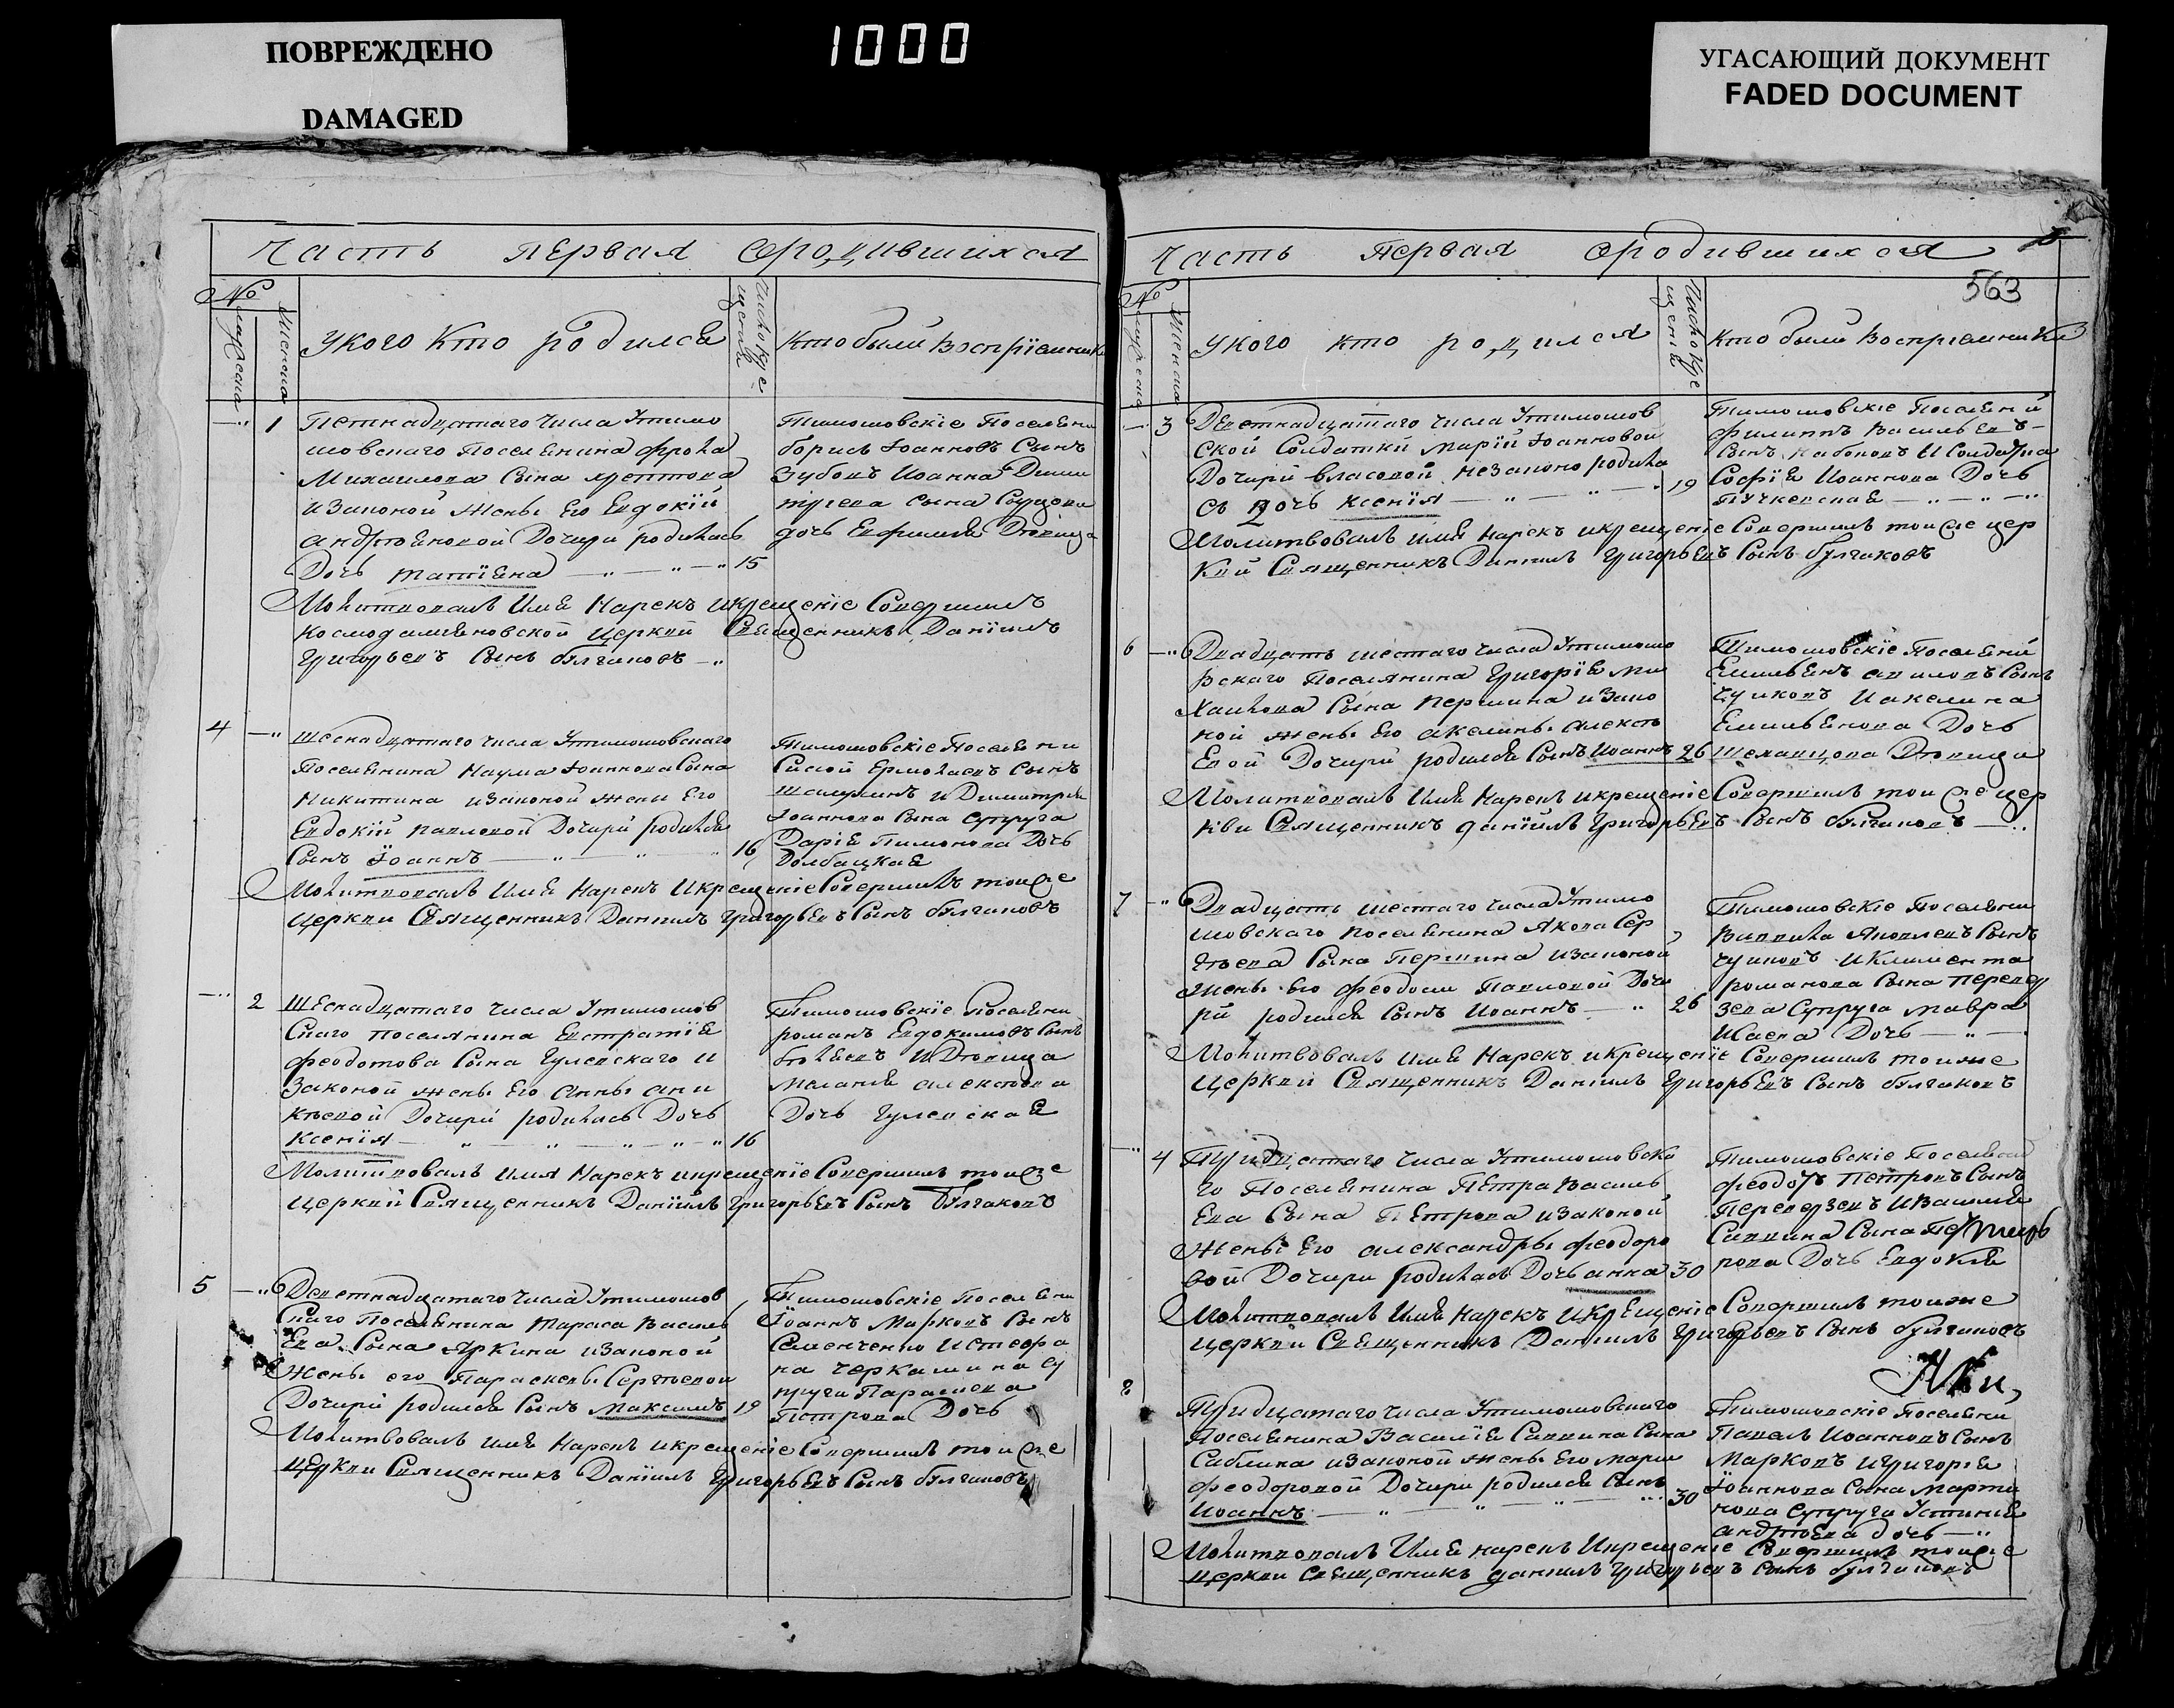 ПОВРЕЖДЕНО
DAMAGED
1000
УГАСАЮЩИЙ ДОКУМЕНТ
FADED DOCUMENT
Часть первая ородившихся
№
мужеска
Женска
Укого Кто родился
Число крещенія
Кто были Воспріемники
1
Петнадцатаго Числа Утимо
шовскаго Поселенина фрола
Михаилова Сына
изаконой Жены Его Евдокіи
андреевой Дочири родилась
Дочь татіена
15
Тимошовскіе Поселени
борись Іоанновъ Сынъ
Зубовъ Иоанна Дими
тріева Сына
дочь Евфимія Девица
Молитвовалъ Имя Нарекъ икрещеніе Совершилъ
Космодамиеновской Церкви Священникъ Даніилъ
Григорьевъ Сынъ булгаковъ
4
Шеснадцатаго Числа Утимошовскаго
Поселенина Наума Іоаннова Сына
Никитина изаконой жены Его
Евдокіи павловой Дочири родился
Сынъ Іоаннъ
16
Тимошовскіе Поселени
Сисой Ермолаевъ Сынъ
и Димитрія
Іоаннова Сына Супруга
Даріе Пимонова Дочь
Долбацкае
Молитвовалъ Имя Нарекъ Икрещеніе Совершилъ тоиже
Церкви Священникъ Даниилъ Григорьевъ Сынъ булгаковъ
2
Шеснадцатаго Числа Утимошов
Скаго поселянина Евстратіе
феодотова Сына Гулевскаго и
Законой жены Его Анны ани
кѣевой Дочири родилась Дочь
Ксенія
16
Тимошовскіе Поселени
романъ Евдокимовъ Сынъ
иДевица
Маланія алексѣева
Дочь Гулевскае
Молитвовалъ имя Нарекъ икрещеніе Совершилъ тоиже
Церкви Священникъ Даніилъ Григорьевъ Сынъ Булгаковъ
5
Деветнадцатаго Числа Утимошов
Скаго Поселенина Тараса Василь
Ева Сына Яркина изаконой
Жены его Параскевы Сергѣевой
Дочири родился Сынъ Максимъ
19
Тимошовскіе Поселени
Іоаннъ Марковъ Сынъ
Семенченко иСтефа
на Черкашина су
пруга Парасковея
Петрова Дочь
Молитвовалъ имя Нарекъ икрещеніе Совершилъ тоиже
Церкви Священникъ Даніилъ Григорьевъ Сынъ булгаковъ
Часть Первая ородившихся
563
№
мужеска
Женска
Укого кто родился
Число крещенія
Кто были Воспріемники
3
Деветнадцатаго числа Утимошов
ской Солдатки Маріи Іоанновой
Дочири Власовой незаконо родила
сь Дочь Ксенія
19
Тимошовскіе Поселени
филиппъ Васильевъ
Сынъ Набоковъ И Солдатка
Софіе Иоаннова Дочь
Пучковская
Молитвовалъ имя Нарекъ икрещеніе Совершилъ тоиже цер
кви Священникъ Даниилъ Григорьевъ Сынъ булгаковъ
6
Двадцать шестаго числа Утимошо
вскаго Поселянина Григоріе Ми
хаилова Сына Першина изако
ной жены Его акелины алексѣ
Евой Дочири родился Сынъ Иоаннъ
26
Тимошовскіе Поселени
Емильенъ Сынъ
Чуиковъ Иакелина
Емильенова Дочь
Шехавцова Девица
Молитвовалъ Имя Нарекъ икрещеніе Совершилъ тоиже цер
кви Священникъ Даніилъ Григорьевъ Сынъ булгаковъ
7
Двадцать шестаго числа Утимо
шовскаго поселенина Якова Сер
гѣева Сына Першина изаконой
Жены Его феодосии Павловой Дочи
ри родился Сынъ Иоаннъ
26
Тимошовскіе Поселени
Вавила Яковлевъ Сынъ
Чуиковъ иКлимента
романова Сына Переверзева
Супруга мавра
Исаева Дочь
Молитвовалъ Имя Нарекъ икрещеніе Совершилъ тоиже
Церкви Священникъ Даниилъ Григорьевъ Сынъ булгаковъ
4
Тридцетаго Числа Утимошовска
го Поселенина Петра Василь
Ева Сына Петрова изаконой
Жены Его александры феодоро
вой Дочири родилась Дочь анна
30
Тимошовскіе Поселени
феодотъ Петровъ Сынъ
Переверзевъ иВасилія
Саввина Сына
Дочь Евдокія
Молитвовалъ Имя Нарекъ икрещеніе Совершилъ тоиже
Церкви Священникъ Даниилъ Григорьевъ Сынъ булгаковъ
8
Тридцатаго Числа Утимошовскаго
Поселенина Василіе Саввина Сына
Саблина изаконой жены Его марии
феодоровой Дочири родился Сынъ
Иоаннъ
30
Тимошовскіе Поселени
Павелъ Иоанновъ Сынъ
Марковъ иГригоріе
Іоаннова Сына Марти
нова Супруга Устиніе
андреева дочь
Молитвовалъ Имя нарекъ Икрещеніе Совершилъ тоиже
Церкви Священникъ Даниилъ Григорьевъ Сынъ булгаковъ